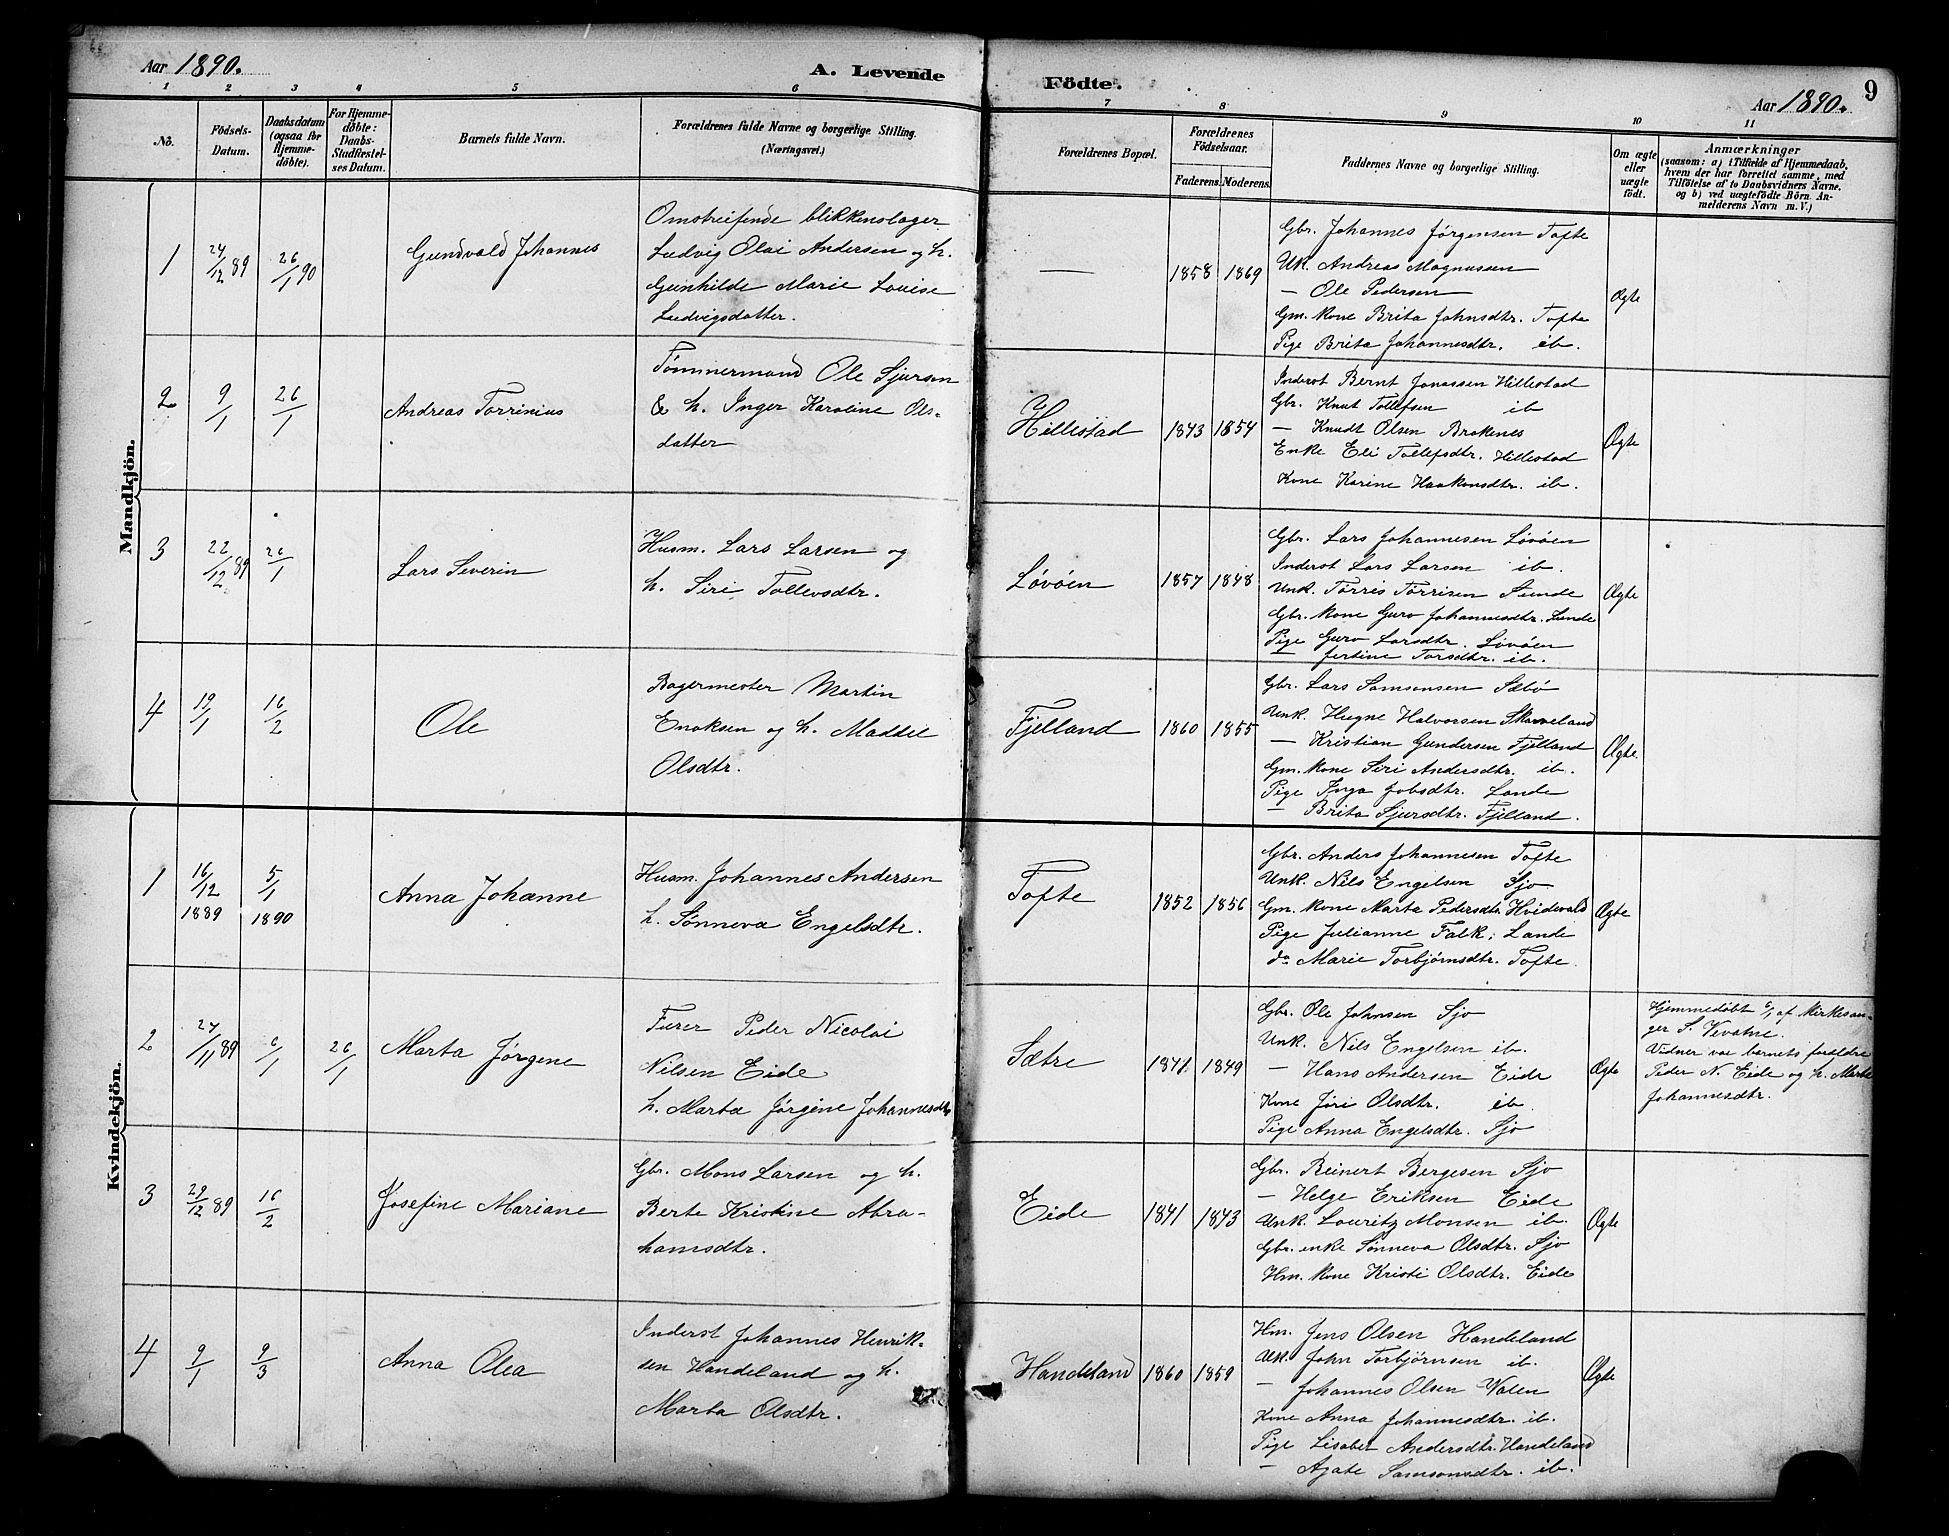 Aar 1890.
A. Levende
Födte.
Aar 1890.
9
1 2 3 4 5 6 7 8 9 10 11
No.
Födsels-
Datum.
Daabsdatum
(ogsaa for
Hjemme-
döbte).
For Hjemme-
döbte:
Daabs-
Stadfæstel-
ses Datum.
Barnets fulde Navn.
Forældrenes fulde Navne og borgerlige Stilling.
(Næringsvei.)
Forældrenes Bopæl.
Forældrenes
Födselsaar.
Faderens. Moderens.
Faddernes Navne og borgerlige Stilling.
Om ægte
eller
uægte
födt.
Anmærkninger
(saasom: a) i Tilfælde af Hjemmedaab,
hvem der har forrettet samme, med
Tilföielse af to Daabsvidners Navne.
og b) ved uægtefödte Börn An-
melderens Navn m. V.)
Mandkjön.
1
24/12 89
26/1 90
Gundvald Johannes
Omstreifende blikkenslager
Ludvig Olai Andersen og h.
Gunhilde Marie Louise
Ludvigsdatter.
—
1858 1869
Gbr. Johannes Jørgensen Tofte
Uk. Andreas Magnussen
— Ole Pedersen
Gm. Kone Brita Johnsdtr. Tofte
Pige Brita Johannesdtr. ib.
Ægte
2
9/1
26/1
Andreas Torrinius
Tømmermand Ole Sjursen
& h. Inger Karoline Ols-
datter
Hillestad
1843 1854
Inderst Bernt Jonassen Hillestad
Gbr. Knut Tollefsen ib
— Knudt Olsen Brakenes
Enke Eli Tollefsdtr. Hillestad
Kone Karine Haakonsdtr. ib.
Ægte
3
22/12 89
26/1
Lars Severin
Husm. Lars Larsen og
h. Siri Tollevsdtr.
Løvøen
1857 1848
Gbr. Lars Johannesen Løvøen
Inderst Lars Larsen ib.
Unk. Tørris Tørrisen Sunde
Gbr. Kone Guro Johannesdtr. Sunde
Pige Guro Larsdtr. Løvøen
— Jertine Torsdtr. ib.
Ægte
4
19/1
16/2
Ole
Bagermester Martin
Enoksen og h. Maddel
Olsdtr.
Fjelland
1860 1855
Gbr. Lars Samsonsen Sæbø
Unk. Hugne Halvorsen Skarveland
— Kristian Gundersen Fjelland
Gm. Kone Siri Andersdtr. ib.
Pige Inga Jobsdtr. Lande
— Brita Sjursdtr. Fjelland.
Ægte.
Kvindekjön.
1
16/12
1889
5/1
1890
Anna Johanne
Husm. Johannes Andersen
h. Sønneva Engelsdtr.
Tofte
1852 1856
Gbr. Anders Johannesen Tofte
Unk. Nils Engelsen Sjo
Gm. Kone Marta Pedersdtr. Hvidevold
Pige Julianne Falk, Lande
do Marie Torbjørnsdtr. Tofte.
Ægte
2
24/11 89
6/1
26/1
Marta Jørgene
Furer Peder Nicolai
Nilsen Eide
h. Marta Jørgine Johannesdtr
Sætre
1841. 1849
Gbr. Ole Johnsen Sjo
Unk. Nils Engelsen ib.
— Hans Andersen Eide
Kone Jøri Olsdtr. ib.
Pige Anna Engelsdtr. Sjo
Ægte
Hjemmedøbt 6/1 af Kirkesan-
ger S. Vevatne.
Vidner var barnets forældre
Peder N. Eide og h. Marta
Johannesdtr.
3
29/12 89
16/2
Josefine Mariane
Gbr. Mons Larsen og h.
Berte Kristine Abra-
hamsdtr.
Eide
1841 1843
Gbr. Reinert Bergesen Sjo
— Helge Eriksen Eide
Unk. Louritz Monsen ib.
Gbr. enke Sønneva Olsdtr. Sjo
Hm. Kone Kristi Olsdtr. Eide
Ægte
4
9/1
9/3
Anna Olea
Inderst Johannes Henrik-
sen Handeland og h.
Marta Olsdtr.
Handeland
1860 1859
Hm. Jens Olsen Handeland
Uk. John Torbjørnsen ib.
— Johannes Olsen Valen
Kone Anna Johannesdtr. ib.
Pige Lisabet Andersdtr. Handeland
— Agate Samsonsdtr. ib.
Ægte